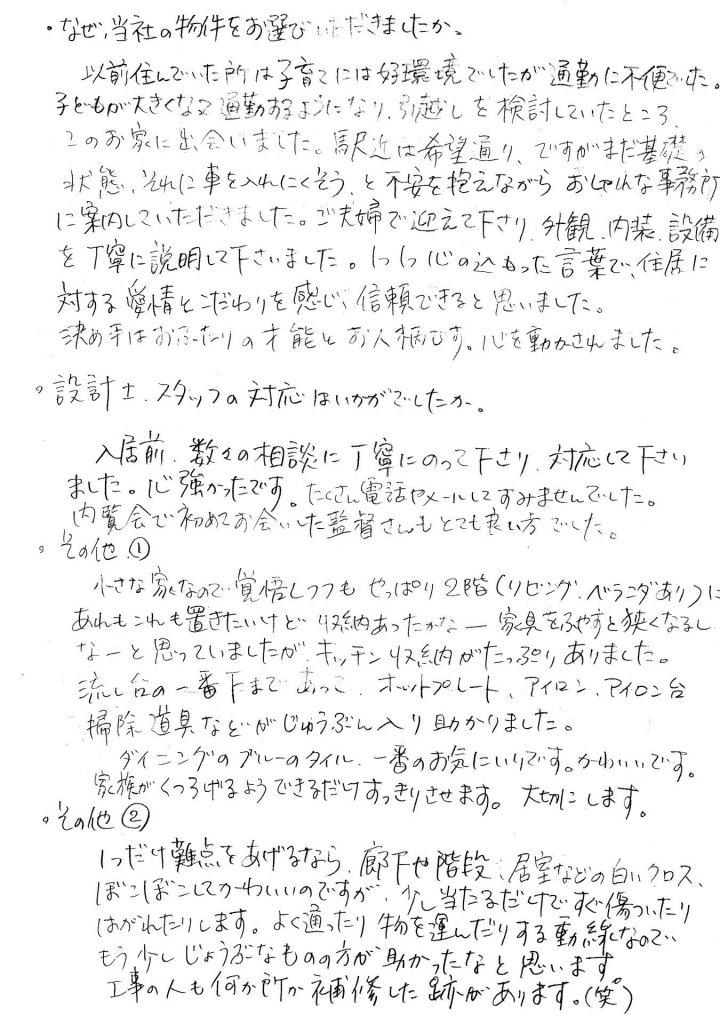 ・なぜ、当社の物件をお選びいただきましたか。
以前住んでいた所は子育てには好環境でしたが通勤に不便でした。
子どもが大きくなって通勤するようになり、引越しを検討していたところ、
このお家に出会いました。駅近は希望通り、ですがまだ基礎の
状態、それに車を入れにくそう、と不安を抱えながら おしゃれな事務所
に案内していただきました。ご夫婦で迎えて下さり、外観、内装、設備
を丁寧に説明して下さいました。1つ1つ心の込もった言葉で、住居に
対する愛情とこだわりを感じ、信頼できると思いました。
決め手はおふたりの才能とお人柄です。心を動かされました。
・設計士、スタッフの対応はいかがでしたか。
入居前、数々の相談に丁寧にのって下さり、対応して下さい
ました。心強かったです。たくさん電話やメールしてすみませんでした。
内覧会で初めてお会いした監督さんもとても良い方でした。
・その他①
小さな家なので覚悟しつつも やっぱり2階(リビング、ベランダあり)に
あれもこれも置きたいけど 収納あったかなー 家具をふやすと狭くなるし
なーと思っていましたが、キッチン収納がたっぷりありました。
流し台の一番下まであって、ホットプレート、アイロン、アイロン台
掃除道具などがじゅうぶん入り助かりました。
ダイニングのブルーのタイル、一番のお気にいりです。かわいいです。
家族がくつろげるようできるだけすっきりさせます。大切にします。
・その他②
1つだけ難点をあげるなら、廊下や階段、居室などの白いクロス、
ぼこぼこしてかわいいのですが、少し当たるだけですぐ傷ついたり
はがれたりします。よく通ったり物を運んだりする動線なので
もう少しじょうぶなものの方が助かったなと思います
工事の人も何か所か補修した跡があります。(笑)